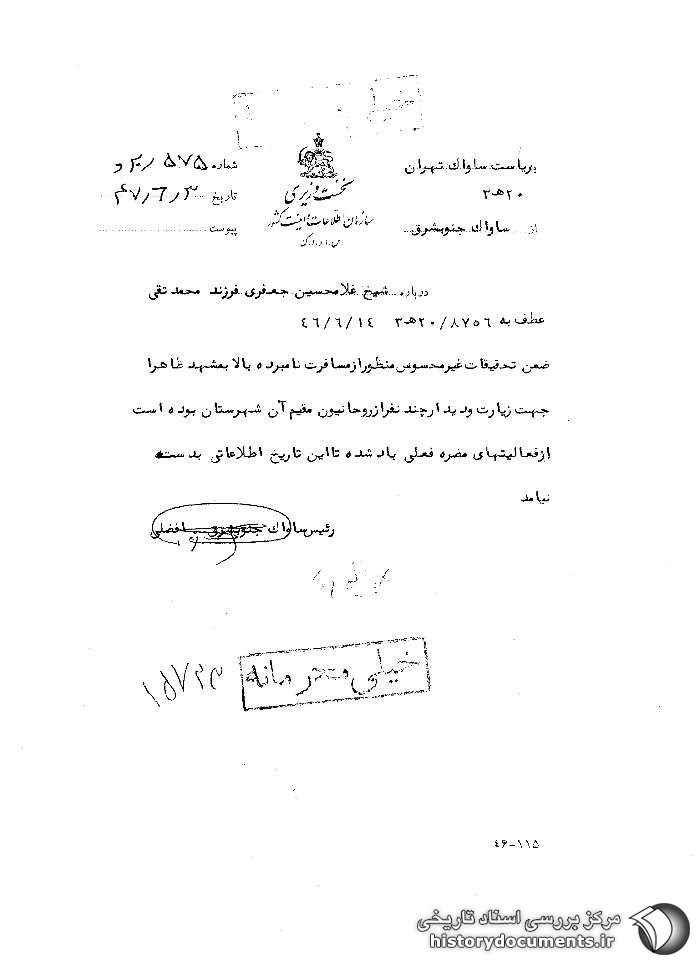 خیلی
بریاست ساواک تهران
۲۰هـ۳
از ساواک جنوبشرق
نخست وزیری
سازمان اطلاعات و امنیت کشور
س.ا.و.ا.ک
شماره ۵۷۵
تاریخ
پیوست
درباره شیخ غلامحسین جعفری فرزند محمد تقی
عطف به ۸۷۵۶/۲۰هـ۳ ۴۶/۶/۱۴
ضمن تحقیقات غیرمحسوس منظور از مسافرت نامبرده بالا بمشهد ظاهرا
جهت زیارت و دیدار چند نفر از روحانیون مقیم آن شهرستان بوده است
از فعالیتهای مضره فعلی یاد شده تا این تاریخ اطلاعاتی بدست
نیامد
رئیس ساواک جنوبشرق افضلی
خیلی محرمانه
۱۵۷۲۳
۴۶-۱۱۵
مرکز بررسی اسناد تاریخی
historydocuments.ir